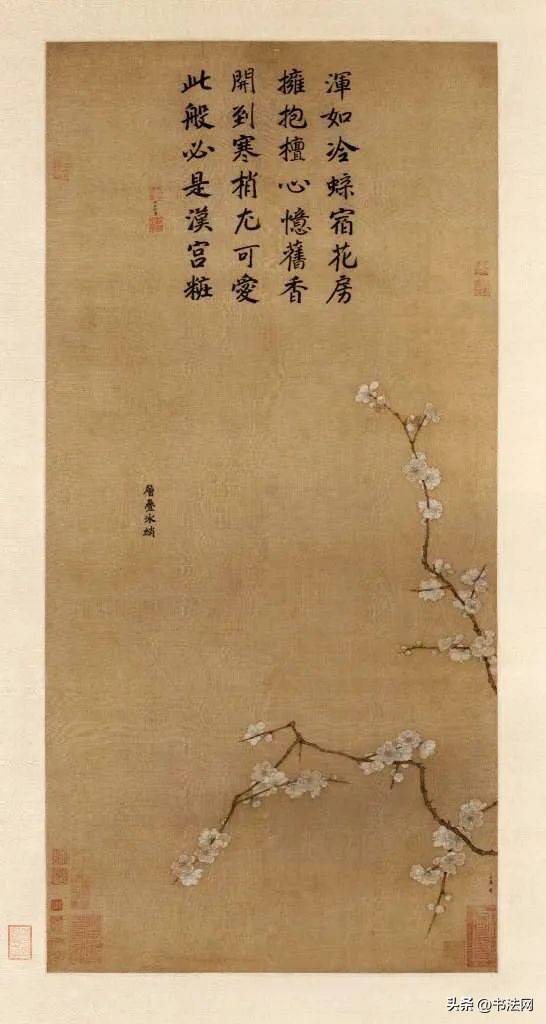 渾如冷蜨宿花房
擁抱檀心憶舊香
開到寒梢尤可愛
此般必是漢宮粧
層疊冰綃
头条 @书法网